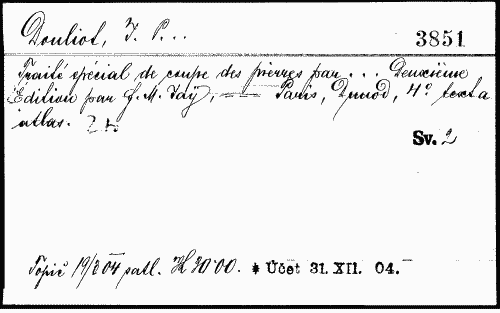 Douliot, J. P...
3851
Traité spécial de coupe des pierres par ... Deuxième
Édition par J. M. Jaÿ, —— Paris, Dunod, 4° text a
atlas.
Sv. 2
Topič 19/3 04 satl. K 30·00. * Účet 31. XII. 04.